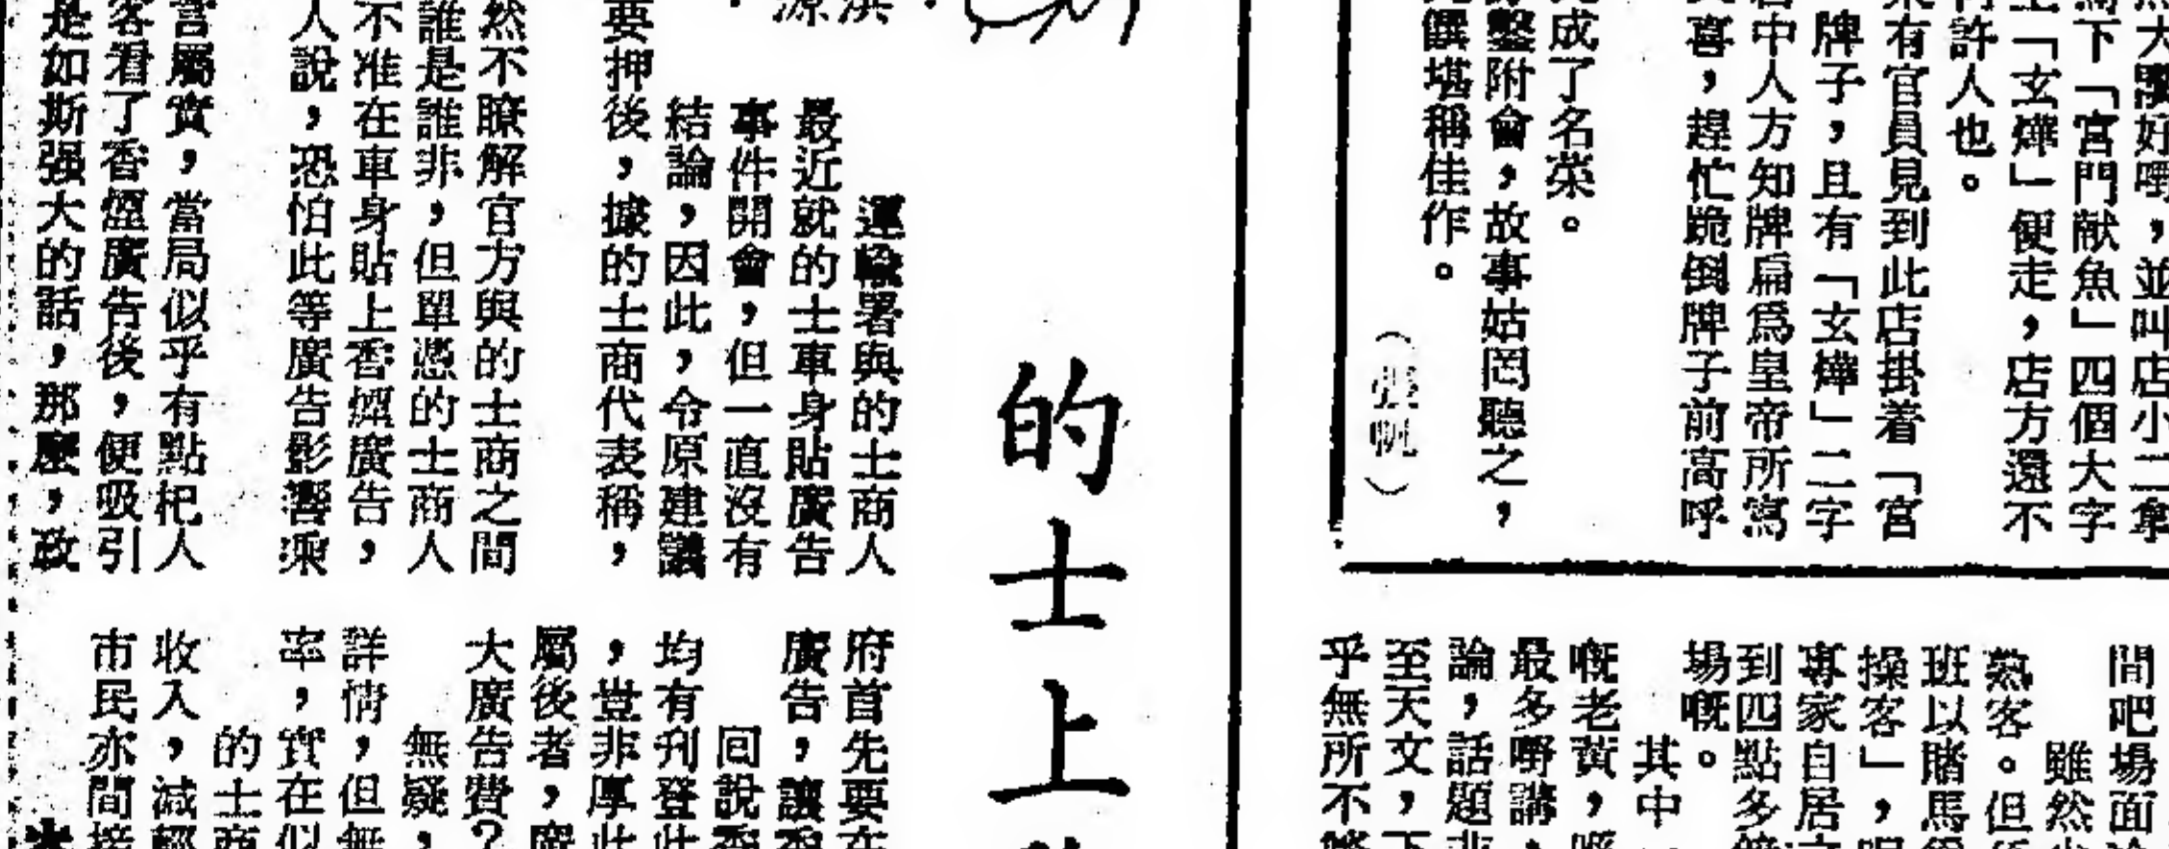 大驟好嘢，並叫店小二拿
下「宮門献魚」四個大字
「玄燁」便走，店方還不
許人也。
有官員見到此店掛着「宮
牌子，且有「玄燁」二字
中人方知牌扁爲皇帝所寫
喜，趕忙跪倒牌子前高呼
成了名菜。
鑿附會，故事姑罔聽之，
饌堪稱佳作。
（張帆）
間吧場面
雖然
熟客。但
班以賭馬
操客」，
專家自居
到四點多
場嘅。
其中
嘅老黃，
最多嘢講，
論，話題
至天文，下
乎無所不
的士上
運輸署與的士商人
最近就的士車身貼廣告
事件開會，但一直沒有
結論，因此，令原建議
要押後，據的士商代表稱，
然不瞭解官方與的士商之間
誰是誰非，但單憑的士商人
不准在車身貼上香煙廣告，
人說，恐怕此等廣告影響乘
言屬實，當局似乎有點杞人
客看了香煙廣告後，便吸引
是如斯强大的話，那麼，政
府首先要在
廣告，讓
回說香
均有刋登此
，豈非厚此
屬後者，
大廣告費？
無疑，
詳情，但無
率，實在似
的士商
收入，減輕
市民亦間接